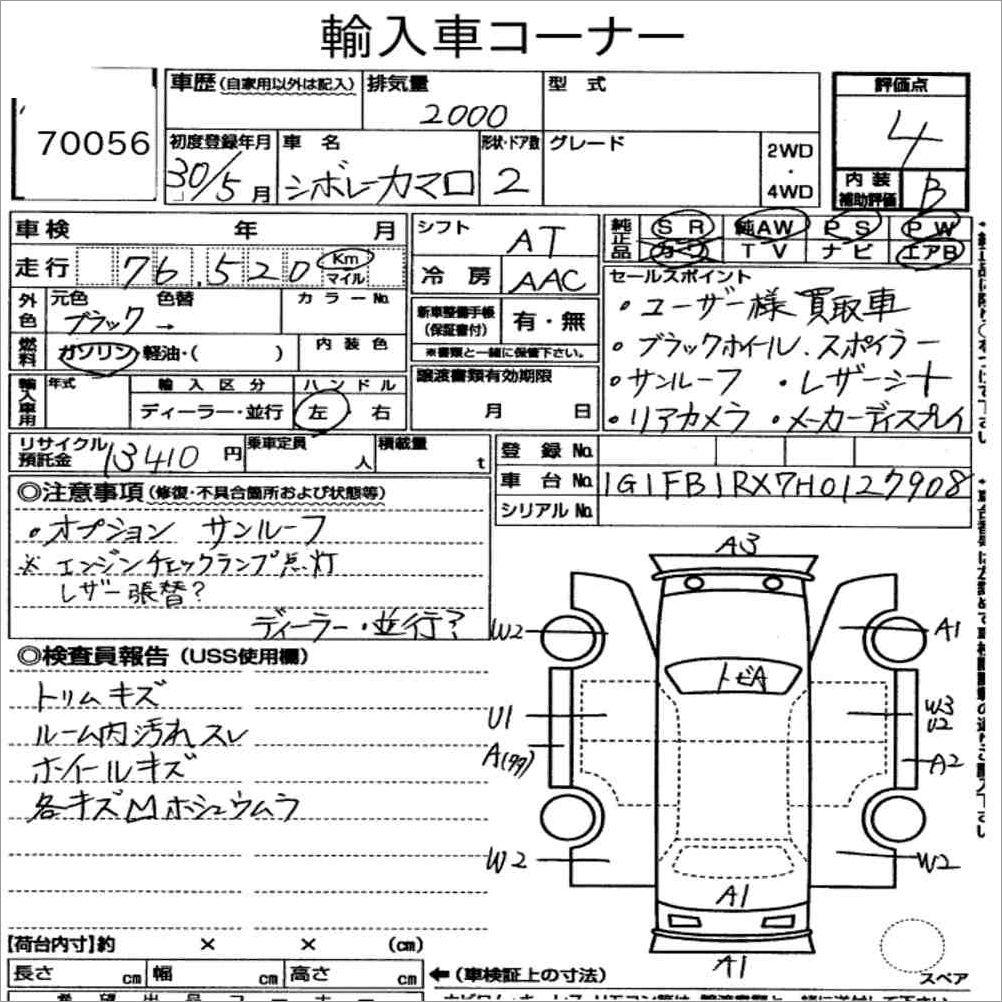 輸入車コーナー
70056
車歴(自家用以外は記入) 排気量 2000 型式
初度登録年月 30/5月 車名 シボレーカマロ 形状・ドア数 2 グレード 2WD・4WD
評価点 4
内装補助評価 B
車検 年 月
走行 76,520 Km マイル
外色 元色 ブラック→ 色替 カラーNo.
燃料 ガソリン・軽油・( ) 内装色
輸入車用 年式 輸入区分 ディーラー・並行 ハンドル 左・右
シフト AT
冷房 AAC
新車整備手帳(保証書付) 有・無
※書類と一緒に保管下さい。
譲渡書類有効期限
月 日
純正品 SR 純AW PS PW
カワ TV ナビ エアB
セールスポイント
・ユーザー様買取車
・ブラックホイール.スポイラー
・サンルーフ ・レザーシート
・リアカメラ ・メーカーディスプレイ
リサイクル預託金 13410円 乗車定員 人 積載量 t
登録No.
車台No. 1G1FB1RX7H0127908
シリアルNo.
◎注意事項(修復・不具合箇所および状態等)
・オプション サンルーフ
※エンジンチェックランプ点灯
レザー張替?
ディーラー・並行?
◎検査員報告(USS使用欄)
トリムキズ
ルーム内汚れスレ
ホイールキズ
各キズ凹ホシュウムラ
A3
W2 A1
トビA
U1 W3 U2
A(99) A2
W2 W2
A1
A1
スペア
【荷台内寸】約 × × (cm)
長さ cm 幅 cm 高さ cm ←(車検証上の寸法)